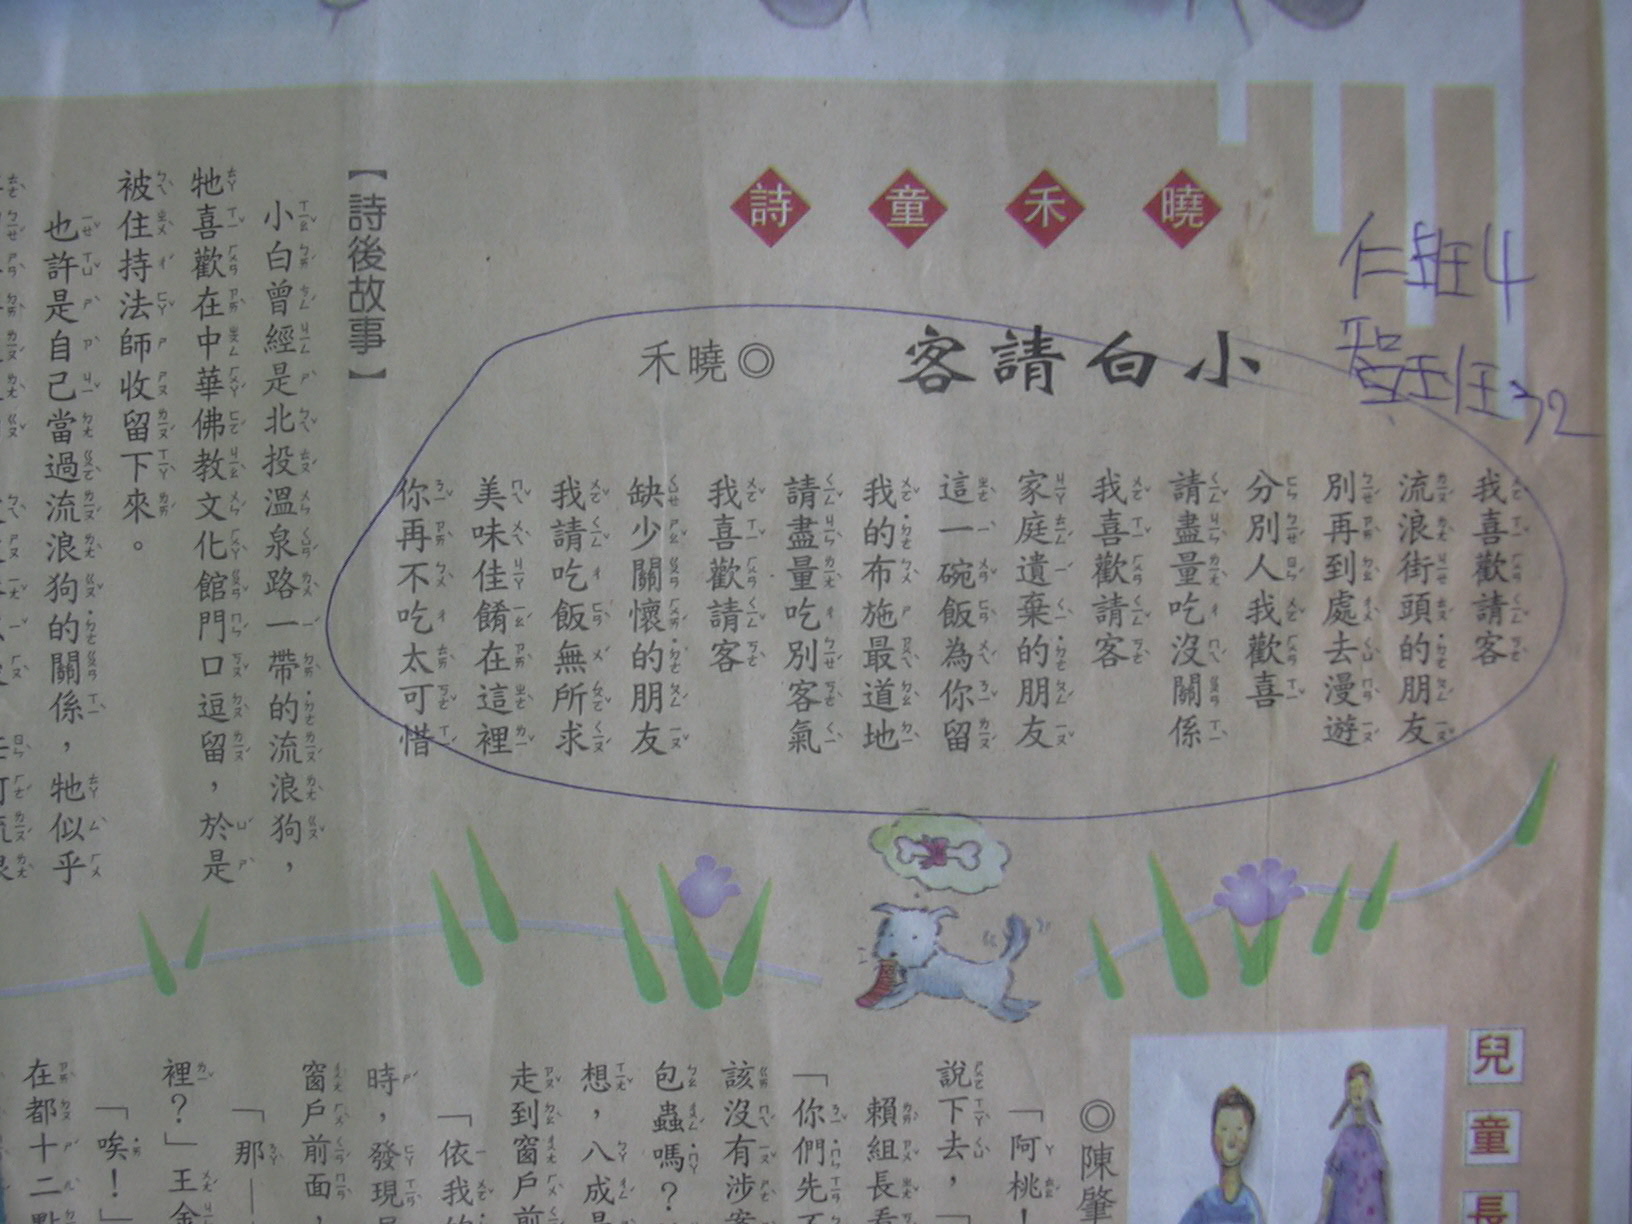 曉禾童詩
仁班4
智班32
小白請客
◎曉禾
我喜歡請客
流浪街頭的朋友
別再到處去漫遊
分別人我歡喜
請盡量吃沒關係
我喜歡請客
家庭遺棄的朋友
這一碗飯為你留
我的布施最道地
請盡量吃別客氣
我喜歡請客
缺少關懷的朋友
我請吃飯無所求
美味佳餚在這裡
你再不吃太可惜
【詩後故事】
小白曾經是北投溫泉路一帶的流浪狗，
牠喜歡在中華佛教文化館門口逗留，於是
被住持法師收留下來。
也許是自己當過流浪狗的關係，牠似乎
兒童長
◎陳肇
「阿桃！
說下去，「
賴組長看
「你們先不
該沒有涉案
包蟲嗎？
想，八成是
走到窗戶前
「依我的
時，發現居
窗戶前面，
「那—
裡？」王金
「唉！」
在都十二點